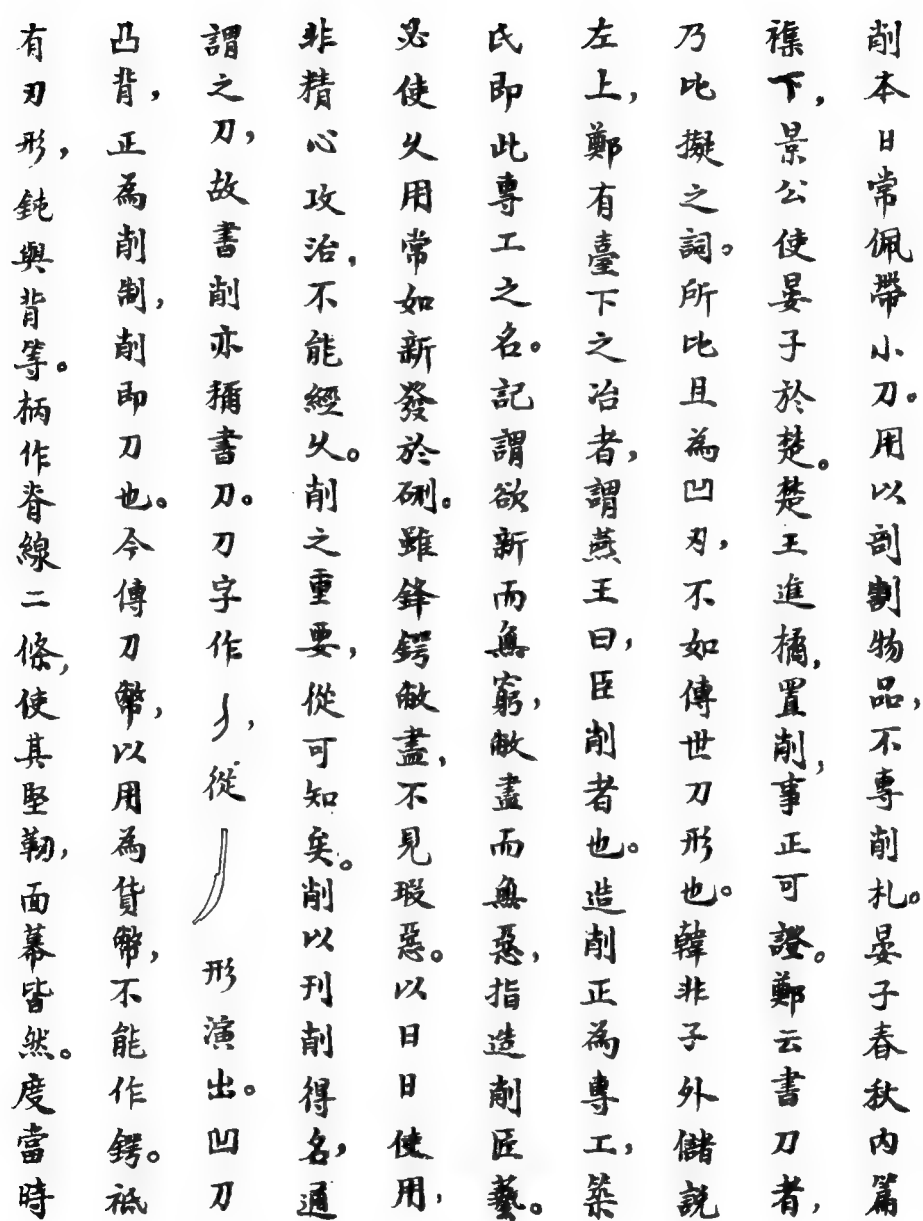 削本日常佩帶小刀。用以剖割物品，不專削札。晏子春秋內篇
襍下，景公使晏子於楚。楚王進橘，置削，事正可證。鄭云書刀者，
乃比擬之詞。所比且為凹刃，不如傳世刀形也。韓非子外儲說
左上，鄭有臺下之冶者，謂燕王曰，臣削者也。造削正為專工，築
氏即此專工之名。記謂欲新而無窮，敝盡而無惡，指造削匠藝。
必使久用常如新發於硎。雖鋒鍔敝盡，不見瑕惡。以日日使用，
非精心攻治，不能經久。削之重要，從可知矣。削以刊削得名，通
謂之刀，故書削亦稱書刀。刀字作，從形演出。凹刀
凸背，正為削制，削即刀也。今傳刀幣，以用為貨幣，不能作鍔。祗
有刃形，鈍與背等。柄作脊線二條，使其堅韌，面幕皆然。度當時